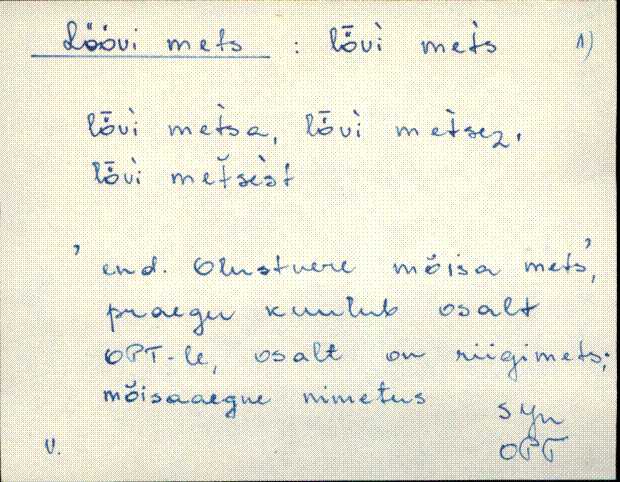 Lȫövi mets : lȭvi mets 1)
lȭvi metsa, lȭvi metsez,
lȭvi metsest
' end. Olustvere mõisa mets',
praegu kuulub osalt
OPT-le, osalt on riigimets;
mõisaaegne nimetus
syn
V. OPT